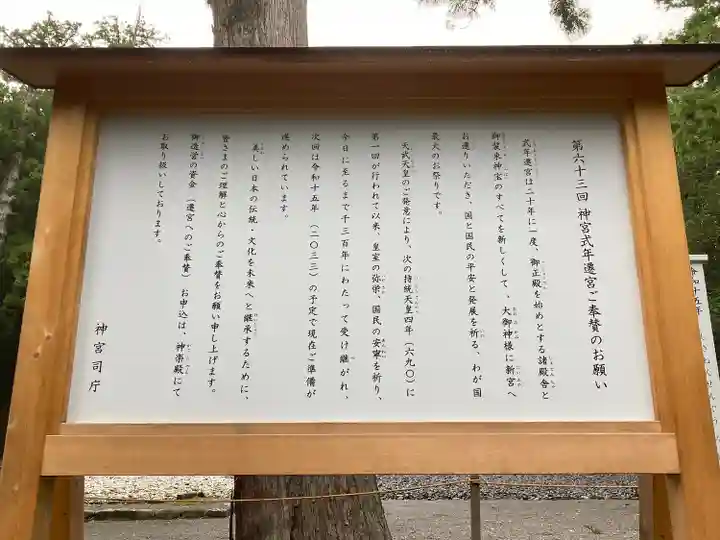 第六十三回 神宮式年遷宮ご奉賛のお願い
式年遷宮は二十年に一度、御正殿を始めとする諸殿舎と
御装束神宝のすべてを新しくして、大御神様に新宮へ
お遷りいただき、国と国民の平安と発展を祈る、わが国
最大のお祭りです。
天武天皇のご発意により、次の持統天皇四年(六九〇)に
第一回が行われて以来、皇室の弥栄、国民の安寧を祈り、
今日に至るまで千三百年にわたって受け継がれ、
次回は令和十五年(二〇三三)の予定で現在ご準備が
進められています。
美しい日本の伝統・文化を未来へと継承するために、
皆さまのご理解と心からのご奉賛をお願い申し上げます。
御造営の資金(遷宮へのご奉賛)お申込は、神楽殿にて
お取り扱いしております。
神宮司庁
令和十五年